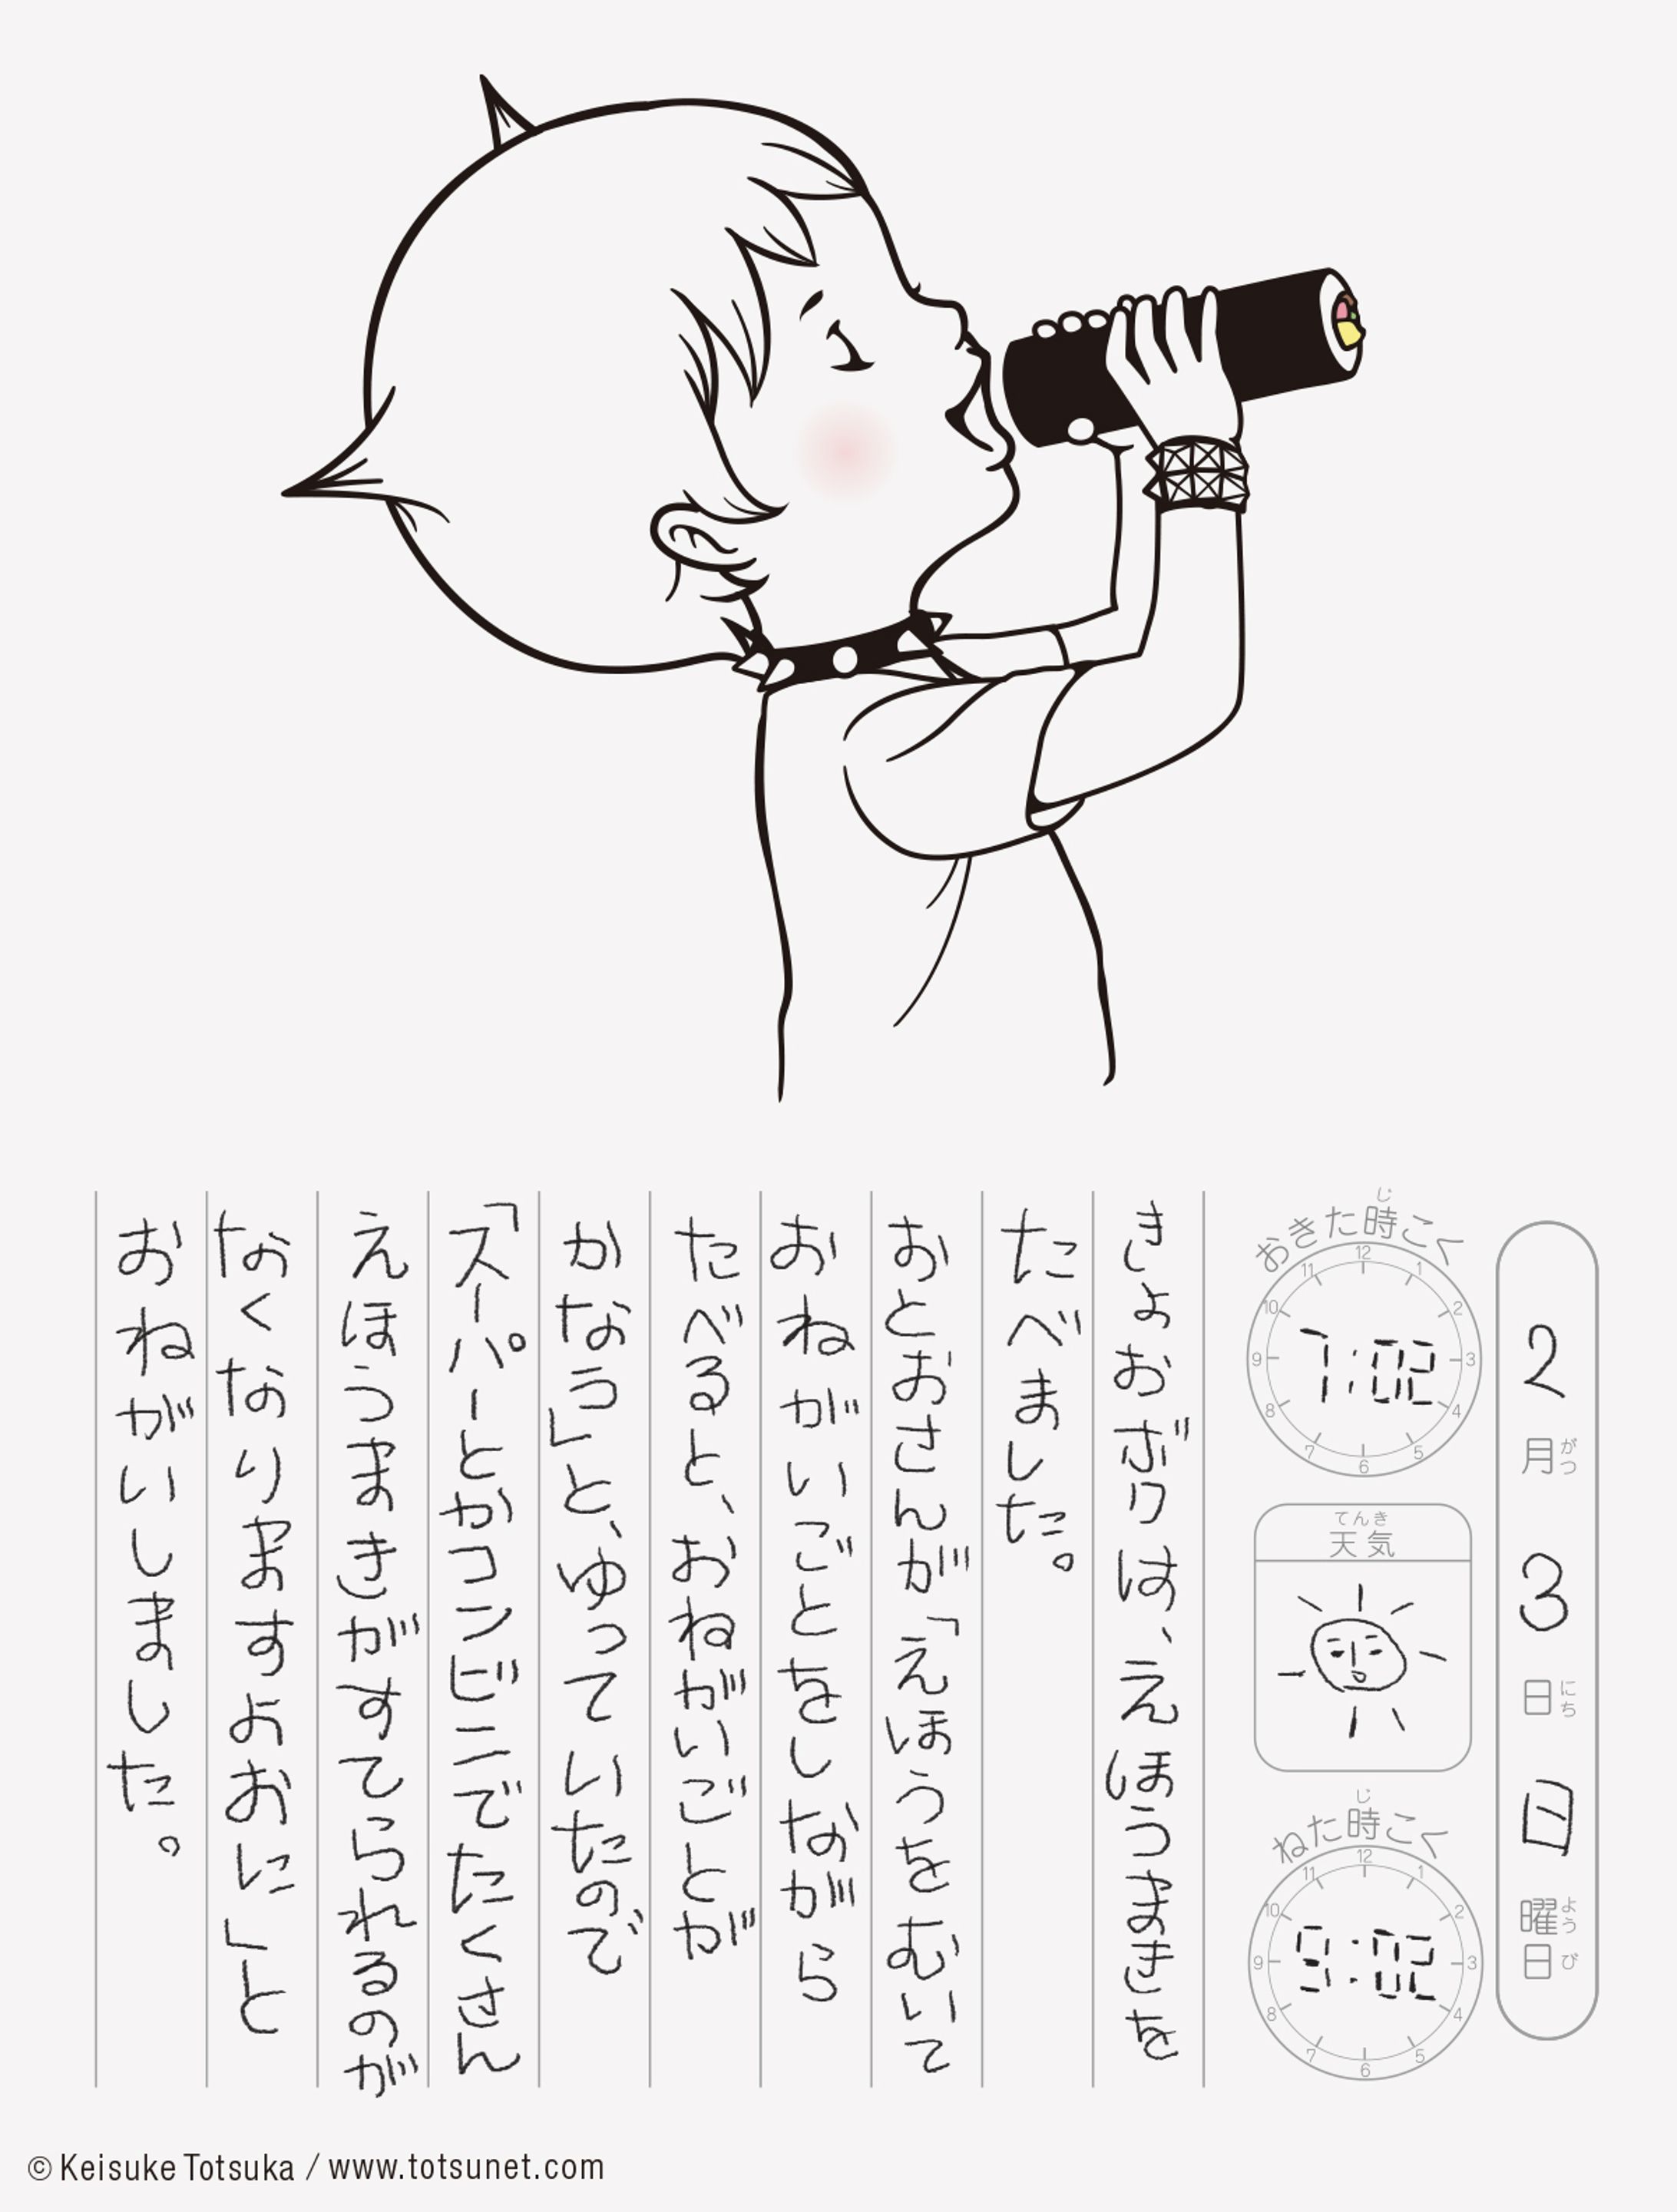 2月3日日曜日
がつ
にち
ようび
おきた時こく
じ
12
1
2
3
4
5
6
7
8
9
10
11
7:02
てんき
天気
ねた時こく
じ
12
1
2
3
4
5
6
7
8
9
10
11
9:02
きょおボクは、えほうまきを
たべました。
おとおさんが「えほうをむいて
おねがいごとをしながら
たべると、おねがいごとが
かなう」と、ゆっていたので
「スーパーとかコンビニでたくさん
えほうまきがすてられるのが
なくなりますよおに」と
おねがいしました。
© Keisuke Totsuka / www.totsunet.com